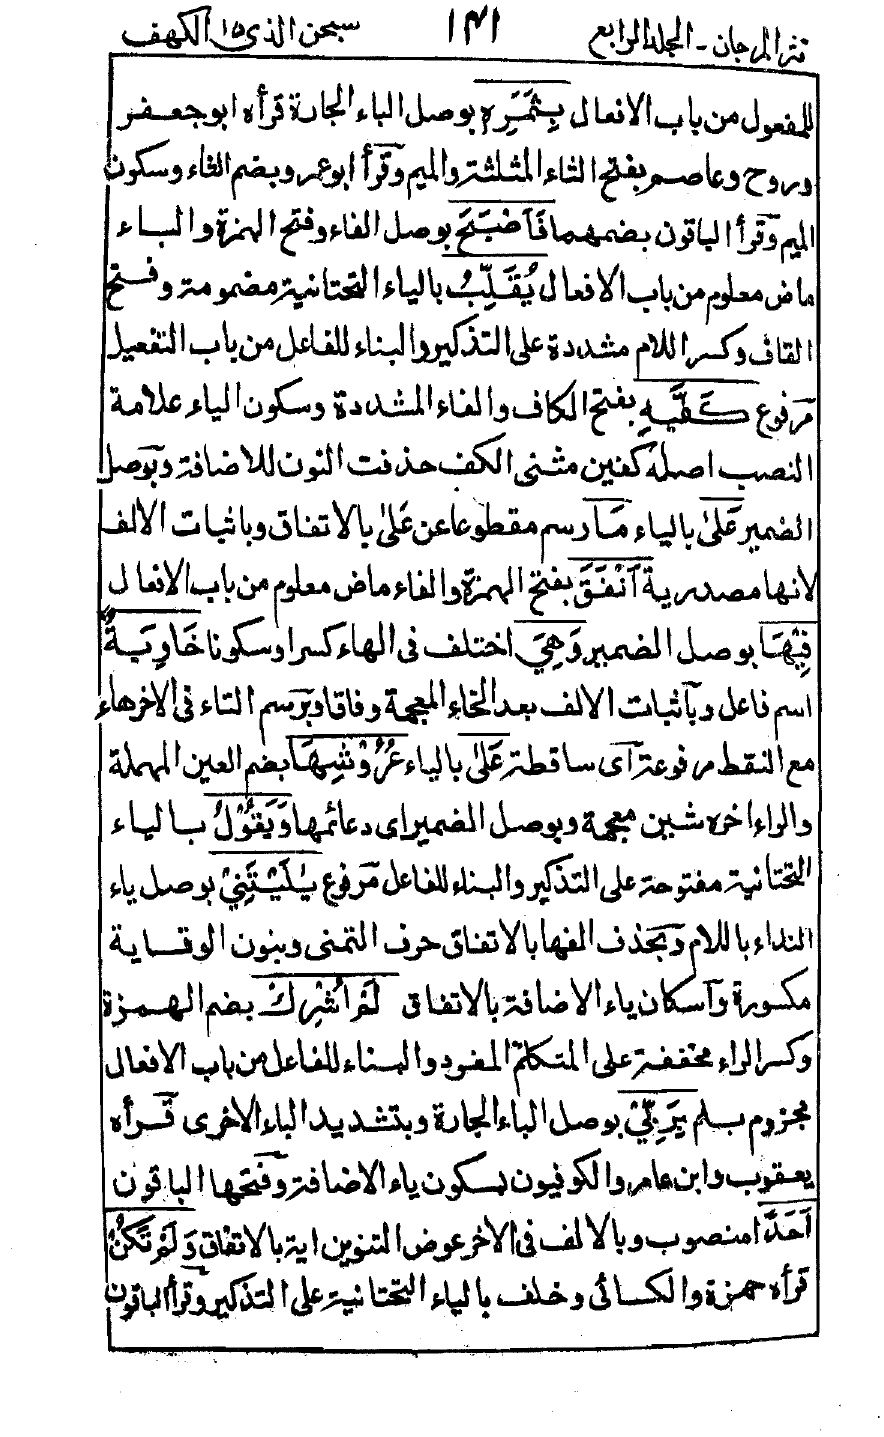 نثر المرجان - المجلد الرابع ١٤١ سبحن الذى ١٥ الكهف
للمفعول من باب الافعال بِثَمَرِهٖ بوصل الباء الجارة قرأه ابو جعفر
وروح وعاصم بفتح الثاء المثلثة والميم وقرأ ابو عمر وبضم الثاء وسكون
الميم وقرأ الباقون بضمهما فَاَصْبَحَ بوصل الفاء وفتح الهمزة والباء
ماض معلوم من باب الافعال يُقَلِّبُ بالياء التحتانية مضمومة وفتح
القاف وكسر اللام مشددة على التذكير والبناء للفاعل من باب التفعيل
مرفوع كَفَّيْهِ بفتح الكاف والفاء المشددة وسكون الياء علامة
النصب اصله كفين مثنى الكف حذفت النون للاضافة وبوصل
الضمير عَلٰى بالياء مَا رسم مقطوعا عن على بالاتفاق وباثبات الالف
لانها مصدرية اَنْفَقَ بفتح الهمزة والفاء ماض معلوم من باب الافعال
فِيْهَا بوصل الضمير وَهِيَ اختلف فى الهاء كسرا وسكونا خَاوِيَةٌ
اسم فاعل وباثبات الالف بعد الخاء المعجمة وفاقا وبرسم التاء فى الاخر هاء
مع النقط مرفوعة اى ساقطة عَلٰى بالياء عُرُوْشِهَا بضم العين المهملة
والراء اخره شين معجمة وبوصل الضمير اى دعائمها وَيَقُوْلُ بالياء
التحتانية مفتوحة على التذكير والبناء للفاعل مرفوع يٰلَيْتَنِيْ بوصل ياء
النداء باللام وبحذف الفها بالاتفاق حرف التمنى وبنون الوقاية
مكسورة وآسكان ياء الاضافة بالاتفاق لَمْ اُشْرِكْ بضم الهمزة
وكسر الراء مخففة على المتكلم المفرد والبناء للفاعل من باب الافعال
مجزوم بلم بِرَبِّيْ بوصل الباء الجارة وبتشديد الباء الاخرى قرأه
يعقوب وابن عامر والكوفيون بسكون ياء الاضافة وفتحها الباقون
اَحَدًا منصوب وبالالف فى الاخر عوض التنوين اية بالاتفاق وَلَمْ تَكُنْ
قرأه حمزة والكسائى وخلف بالياء التحتانية على التذكير وقرأ الباقون